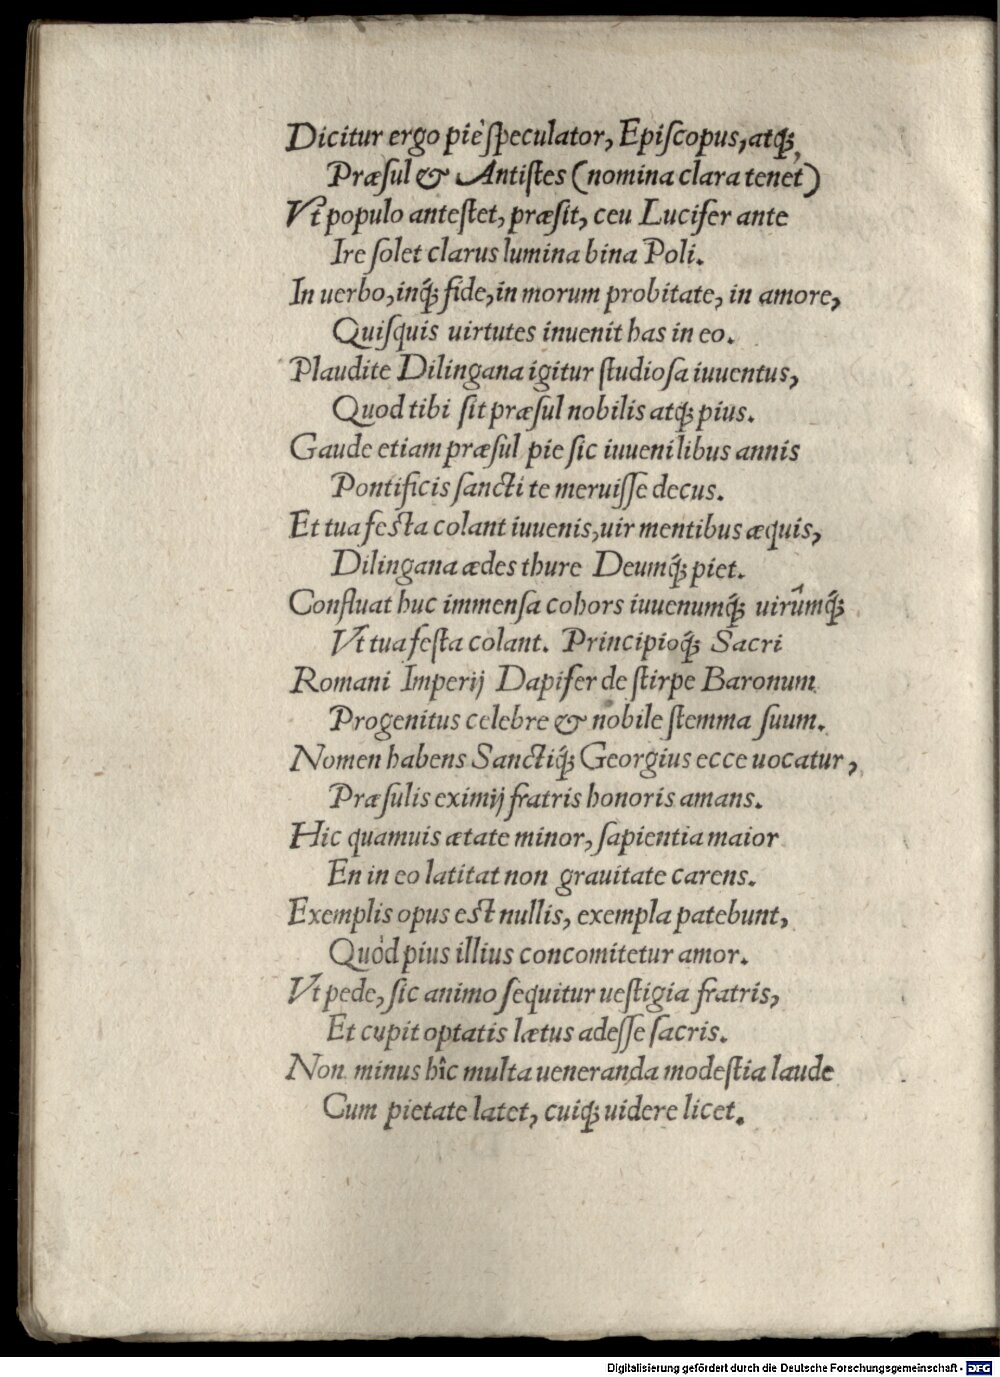 Dicitur ergo piè ſpeculator, Epiſcopus, atq́;,
Præſul & Antiſtes (nomina clara tenet)
Vt populo anteſtet, præſit, ceu Lucifer ante
Ire ſolet clarus lumina bina Poli.
In uerbo, inq́; fide, in morum probitate, in amore,
Quiſquis uirtutes inuenit has in eo.
Plaudite Dilingana igitur ſtudioſa iuuentus,
Quod tibi ſit præſul nobilis atq́; pius.
Gaude etiam præſul pie ſic iuuenilibus annis
Pontificis ſancti te meruiſſe decus.
Et tua feſta colant iuuenis, uir mentibus æquis,
Dilingana ædes thure Deumq́; piet.
Confluat huc immenſa cohors iuuenumq́; uirûmq́;
Vt tua feſta colant. Principioq́; Sacri
Romani Imperij Dapifer de ſtirpe Baronum
Progenitus celebre & nobile ſtemma ſuum.
Nomen habens Sanctiq́; Georgius ecce uocatur,
Præſulis eximij fratris honoris amans.
Hic quamuis ætate minor, ſapientia maior
En in eo latitat non grauitate carens.
Exemplis opus eſt nullis, exempla patebunt,
Quòd pius illius concomitetur amor.
Vt pede, ſic animo ſequitur ueſtigia fratris,
Et cupit optatis lætus adeſſe ſacris.
Non minus hîc multa ueneranda modeſtia laude
Cum pietate latet, cuiq́; uidere licet.
Digitalisierung gefördert durch die Deutsche Forschungsgemeinschaft - DFG